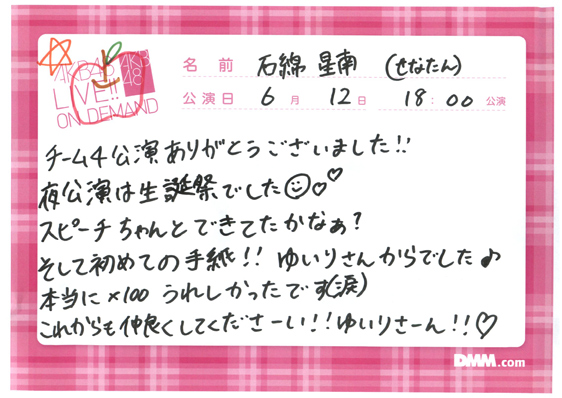 AKB48
AKB
48
LIVE!!
ON DEMAND
名前 石綿 星南 (せなたん)
公演日 6月 12日 18:00 公演
チーム4公演ありがとうございました!!
夜公演は生誕祭でした☺♡♡
スピーチちゃんとできてたかなぁ?
そして初めての手紙!! ゆいりさんからでした♪
本当に×100 うれしかったです(涙)
これからも仲良くしてくださーい!!ゆいりさーん!!♡
DMM.com